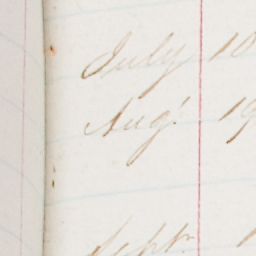 July 10
Augt. 19
Septr 1